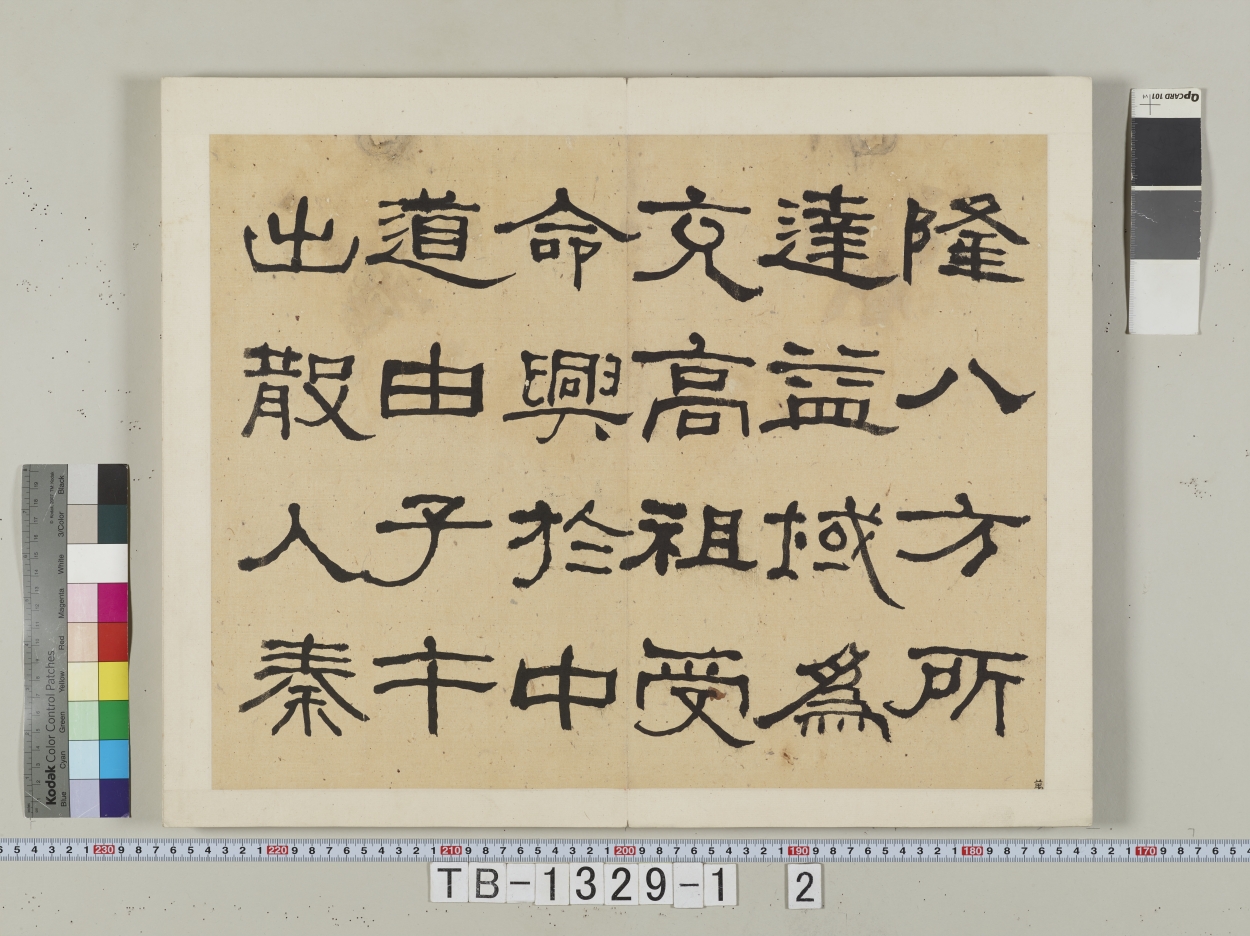 隆八方所
達益域為
充高祖受
命興於中
道由子午
出散入秦
QpCARD 101
Kodak Color Control Patches
Blue Cyan Green Yellow Red Magenta White 3/Color Black
230 220 210 200 190 180 170
TB-1329-1 2